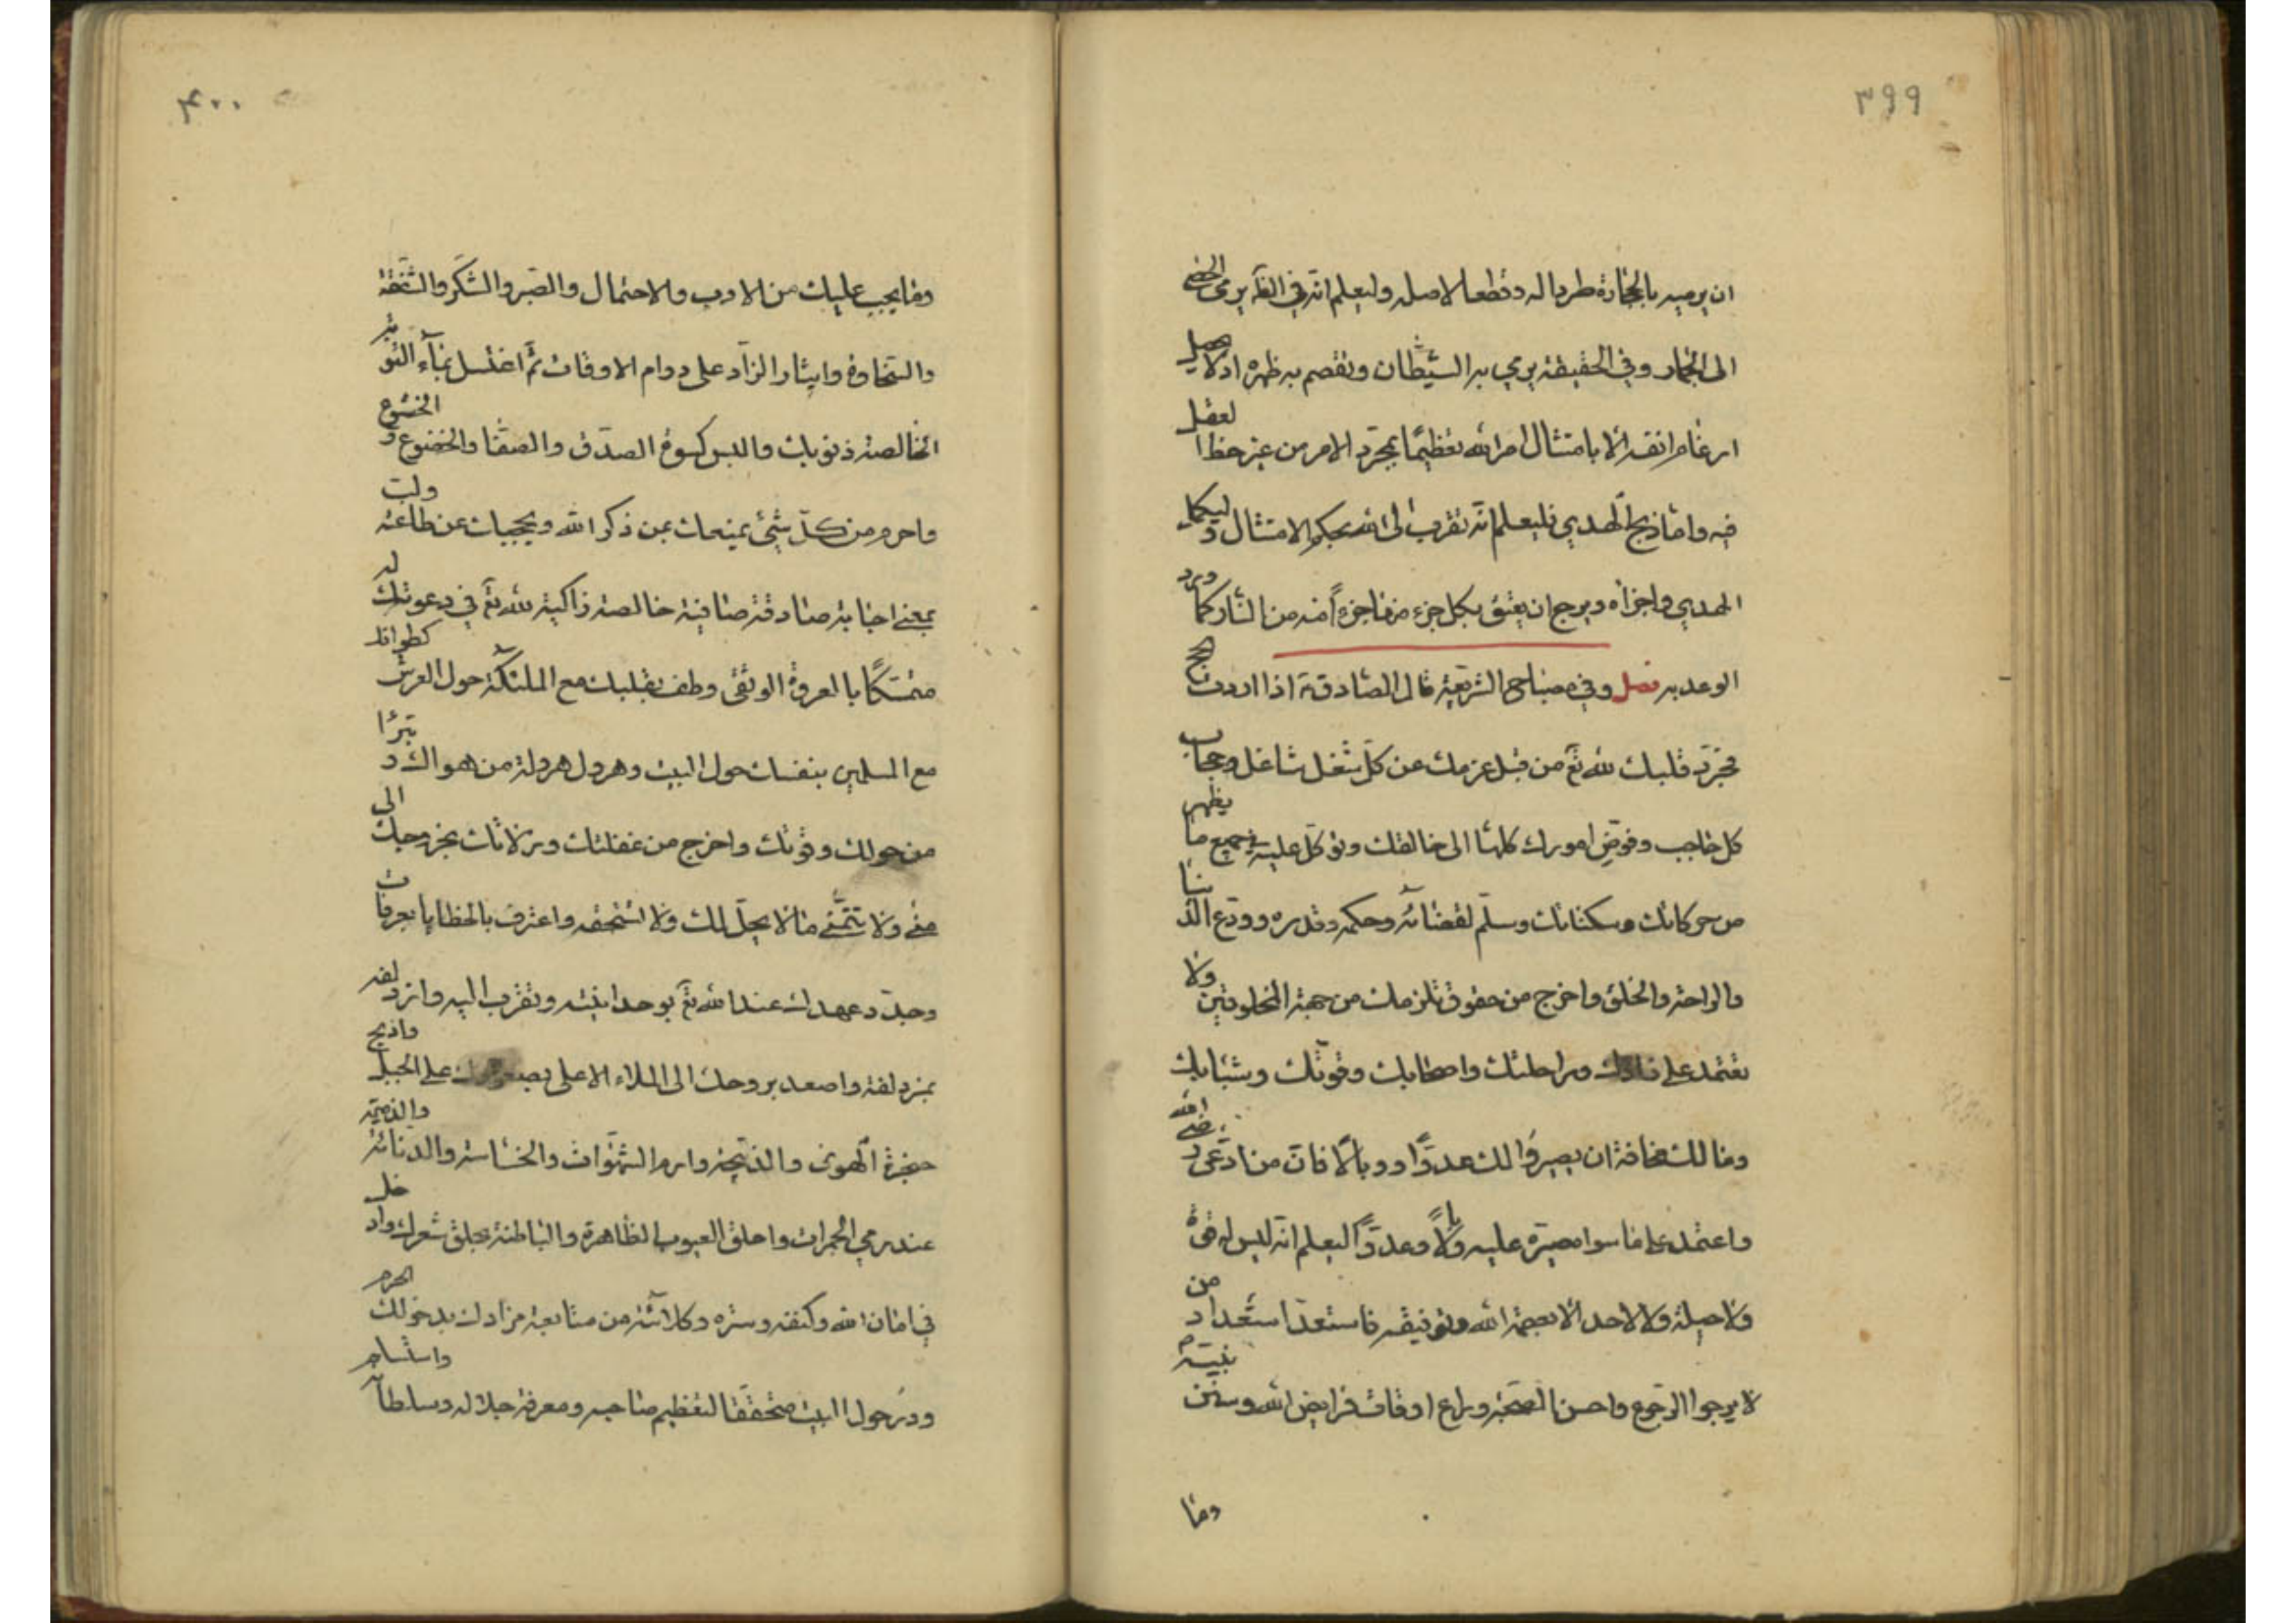 ٣٩٩
ان يرميه بالحجارة طردا له وقطعا لاصله وليعلم انه في الظّ يرمي الحصى
الى الجمار وفي الحقيقة يرمي به الشيطان ويقصم به ظهره اذ لا يحصل
ارغام انفه الا بامتثال امر الله تعظيمًا بمجرد الامر من غير حظ العقل
فيه واما ذبح الهدي فليعلم انه تقرب الى الله بحكم الامتثال وليكمل
الهدي واجزاه ويرج ان يعتق بكل جزء منها جزءًا منه من النار كما ورد
الوعد به فصل وفي مصباح الشريعة قال الصادق ع اذا اردت الحج
فجرّد قلبك لله تع من قبل عزمك عن كلّ شغل شاغل وحجاب
كل حاجب وفوّض امورك كلها الى خالقك وتوكّل عليه في جميع ما يظهر
من حركاتك وسكناتك وسلّم لقضائه وحكمه وقدره وودّع الدنيا
والراحة والخلق واخرج من حقوق تلزمك من جهة المخلوقين ولا
تعتمد على زادك وراحلتك واصحابك وقوّتك وشبابك
ومالك مخافة ان يصيروا لك عدوًّا ووبالًا فان من ادّعى رضى الله
واعتمد على ما سواه صيّره عليه وبالًا وعدوًّا ليعلم انه ليس له قوة
ولا حيلة ولا لاحد الا بعصمة الله وتوفيقه فاستعد استعداد من
لا يرجوا الرجوع واحسن الصحبة وراع اوقات فرايض الله وسنن نبيه م
وما
٤٠٠
وما يجب عليك من الادب والاحتمال والصبر والشكر والشفقة
والسخاوة وايثار الزاد على دوام الاوقات ثم اغتسل بماء التوبة
الخالصة ذنوبك والبس كسوة الصدق والصفا والخضوع والخشوع
واحرم من كلّ شيء يمنعك عن ذكر الله ويحجبك عن طاعته ولبّ
بمعنى اجابة صادقة صافية خالصة زاكية لله تع في دعوتك له
متمسّكًا بالعروة الوثقى وطف بقلبك مع الملئكة حول العرش كطوافك
مع المسلمين بنفسك حول البيت وهرول هرولة من هواك وتبرّا
من حولك وقوّتك واخرج من غفلتك وزلاتك بخروجك الى
منى ولا تتمنّى ما لا يحلّ لك ولا تستحقه واعترف بالخطايا بعرفات
وجدّد عهدك عند الله تع بوحدانيته وتقرب اليه واتّق بمزدلفة
بمزدلفة واصعد بروحك الى الملاء الاعلى بصعودك على الجبل واذبح
حنجرة الهوى والذبيحة وارم الشهوات والخساسة والدنائة والذميمة
عند رمي الجمرات واحلق العيوب الظاهرة والباطنة بحلق شعرك وادخل
في امان الله وكنفه وستره وكلائته من متابعة مرادك بدخولك الحرم
ودر حول البيت متحققا لتعظيم صاحبه ومعرفة جلاله وسلطانه واستلم